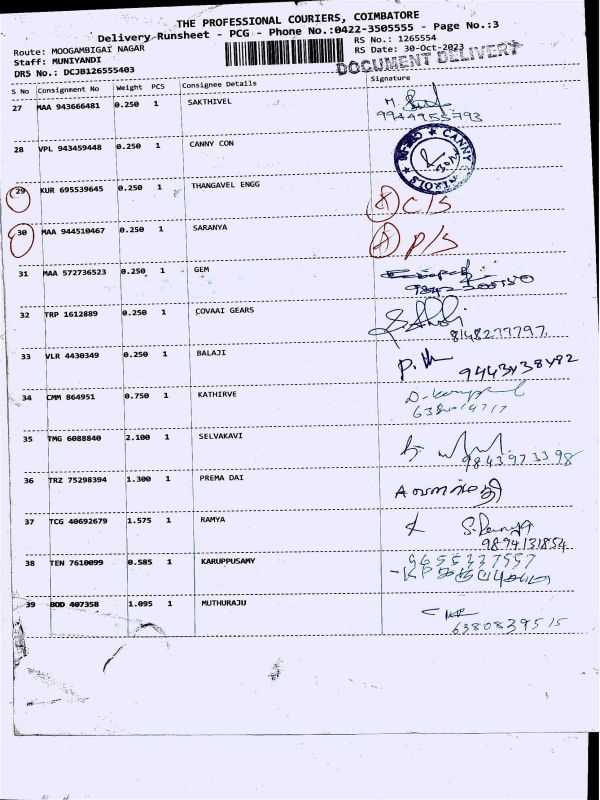 THE PROFESSIONAL COURIERS, COIMBATORE
Delivery Runsheet - PCG - Phone No.:0422-3505555 - Page No.:3
Route: MOOGAMBIGAI NAGAR RS No.: 1265554
Staff: MUNIYANDI RS Date: 30-Oct-2023
DRS No.: DCJB126555403 DOCUMENT DELIVERY
S No Consignment No Weight PCS Consignee Details Signature
27 MAA 943666481 0.250 1 SAKTHIVEL M.
9944955793
28 VPL 943459448 0.250 1 CANNY CON CANNY
29 KUR 695539645 0.250 1 THANGAVEL ENGG C/S
30 MAA 944510467 0.250 1 SARANYA P/S
31 MAA 572736523 0.250 1 GEM
32 TRP 1612889 0.250 1 COVAAI GEARS
8148277797
33 VLR 4430349 0.250 1 BALAJI P.
34 CMM 864951 0.750 1 KATHIRVE
35 TMG 6088840 2.100 1 SELVAKAVI
9843973398
36 TRZ 75298394 1.300 1 PREMA DAI
37 TCG 40692679 1.575 1 RAMYA S.Ramya
9894131854
38 TEN 7610099 0.585 1 KARUPPUSAMY 9655337557
39 BOD 407358 1.095 1 MUTHURAJU
6380839515